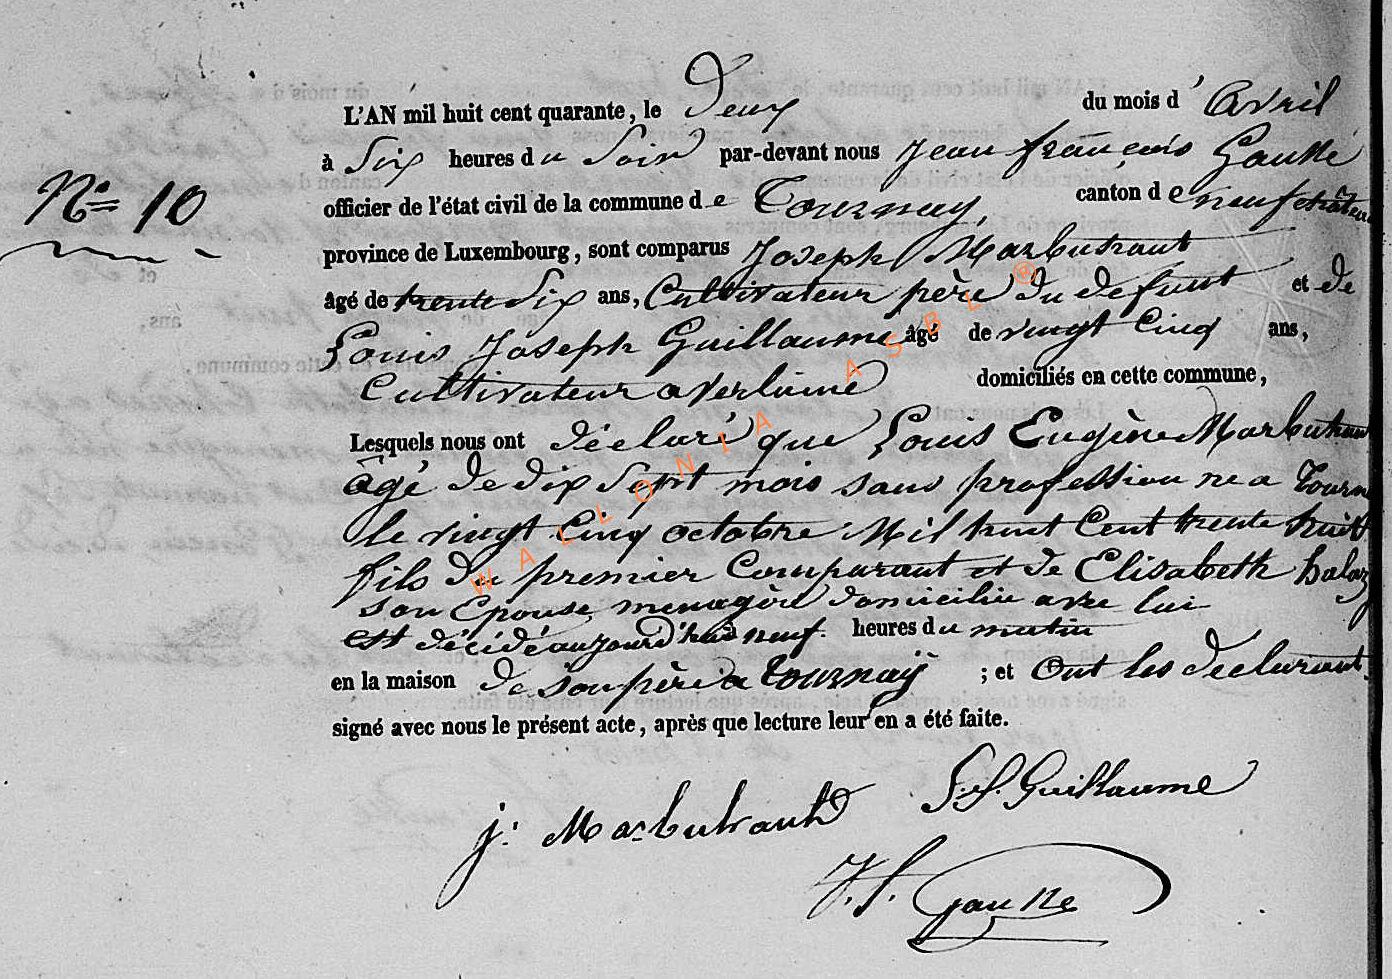 L'AN mil huit cent quarante, le Deux du mois d' Avril
à Six heures du Soir par-devant nous Jean françois
N° 10
officier de l'état civil de la commune de Tournay, canton de neufchâteau
province de Luxembourg, sont comparus Joseph Marbutiaut
âgé de trente Six ans, Cultivateur père du defunt et de
Louis Joseph Guillaume âgé de vingt Cinq ans,
Cultivateur a Verlaine domiciliés en cette commune,
Lesquels nous ont déclaré que Louis Eugène
âgé de dix Sept mois sans profession ne a Tourn
le vingt Cinq octobre Mil huit Cent trente huit
fils du premier Comparant et de Elisabeth
son Epouse menagère domiciliée avec lui
est décédé aujourd'hui neuf heures du matin
en la maison de son père a tournay ; et Ont les declarant
signé avec nous le présent acte, après que lecture leur en a été faite.
j. L. J. Guillaume
J. f.
WALLONIA ASBL ®